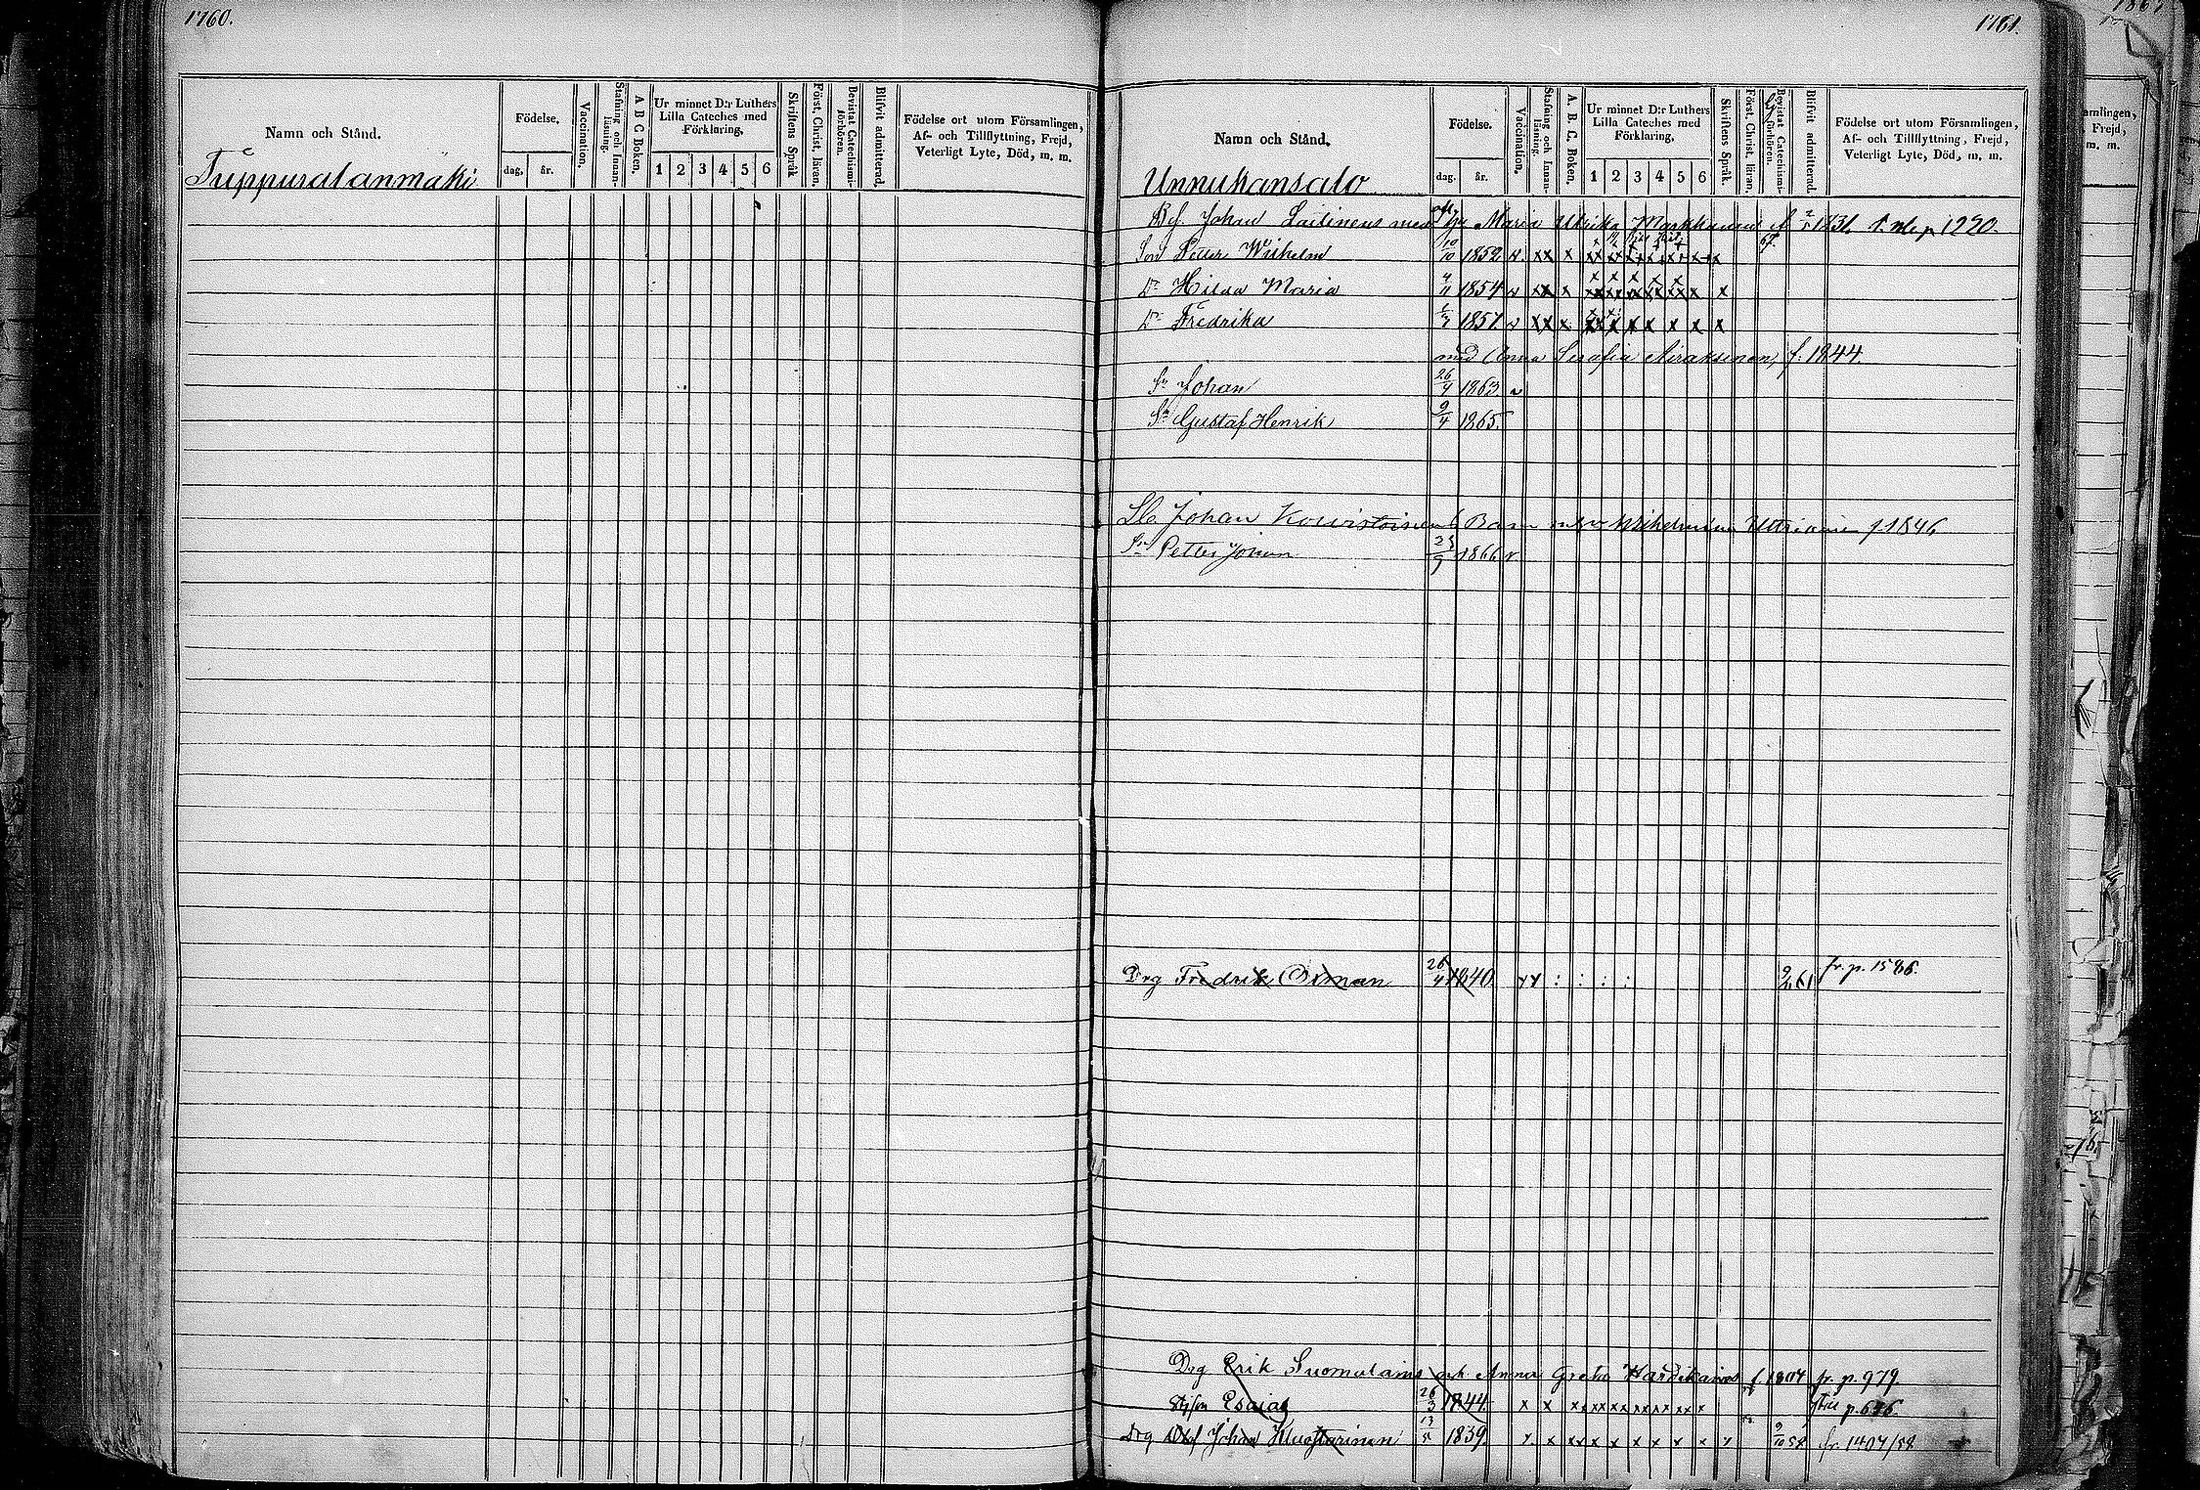 1760.
Namn och Stånd.
Födelse.
dag. år.
Vaccination.
Stafning och Innanläsning.
A B C Boken.
Ur minnet D:r Luthers Lilla Cateches med Förklaring.
1 2 3 4 5 6
Skriftens Språk
Först. Christ. läran.
Bevistat Catechismiförhören.
Blifvit admitterad.
Födelse ort utom Församlingen, Af- och Tillflyttning, Frejd, Veterligt Lyte, Död, m. m.
Tuppuralanmäki
1761.
Namn och Stånd.
Födelse.
dag. år.
Vaccination.
Stafning och Innanläsning.
A. B. C. Boken.
Ur minnet D:r Luthers Lilla Cateches med Förklaring.
1 2 3 4 5 6
Skriftens Språk.
Först. Christ. läran.
Bevistat Catechismiförhören.
Blifvit admitterad.
Födelse ort utom Församlingen, Af- och Tillflyttning, Frejd, Veterligt Lyte, Död, m. m.
Unnukansalo
Johan Laitinens med Maria Ulrika Markkanen f. 2/5 1831 p 1220.
Son Petter Wilhelm 10/10 1852 v xx x
Dr Hilda Maria 4/11 1854 v xx x
Dr Fredrika 1/3 1857 v xx x
med Anna Serafia Airaksinen, f. 1844.
Sn Johan 26/4 1863 v
Sn Gustaf Henrik 9/4 1865.
Johan Kouvistoisen Barn Wilhelmina f 1846
Sn Petter Johan 1866 v.
Drg Fredrik Oxman 26/4 1840 fr. p. 1586.
Drg Erik Suomalainen och Anna Greta f 1804 fr. p. 979
Esaias 26/3 1844 till p. 646.
Drg Olof Johan 13/5 1839. 9/10 58 fr. 1407/58